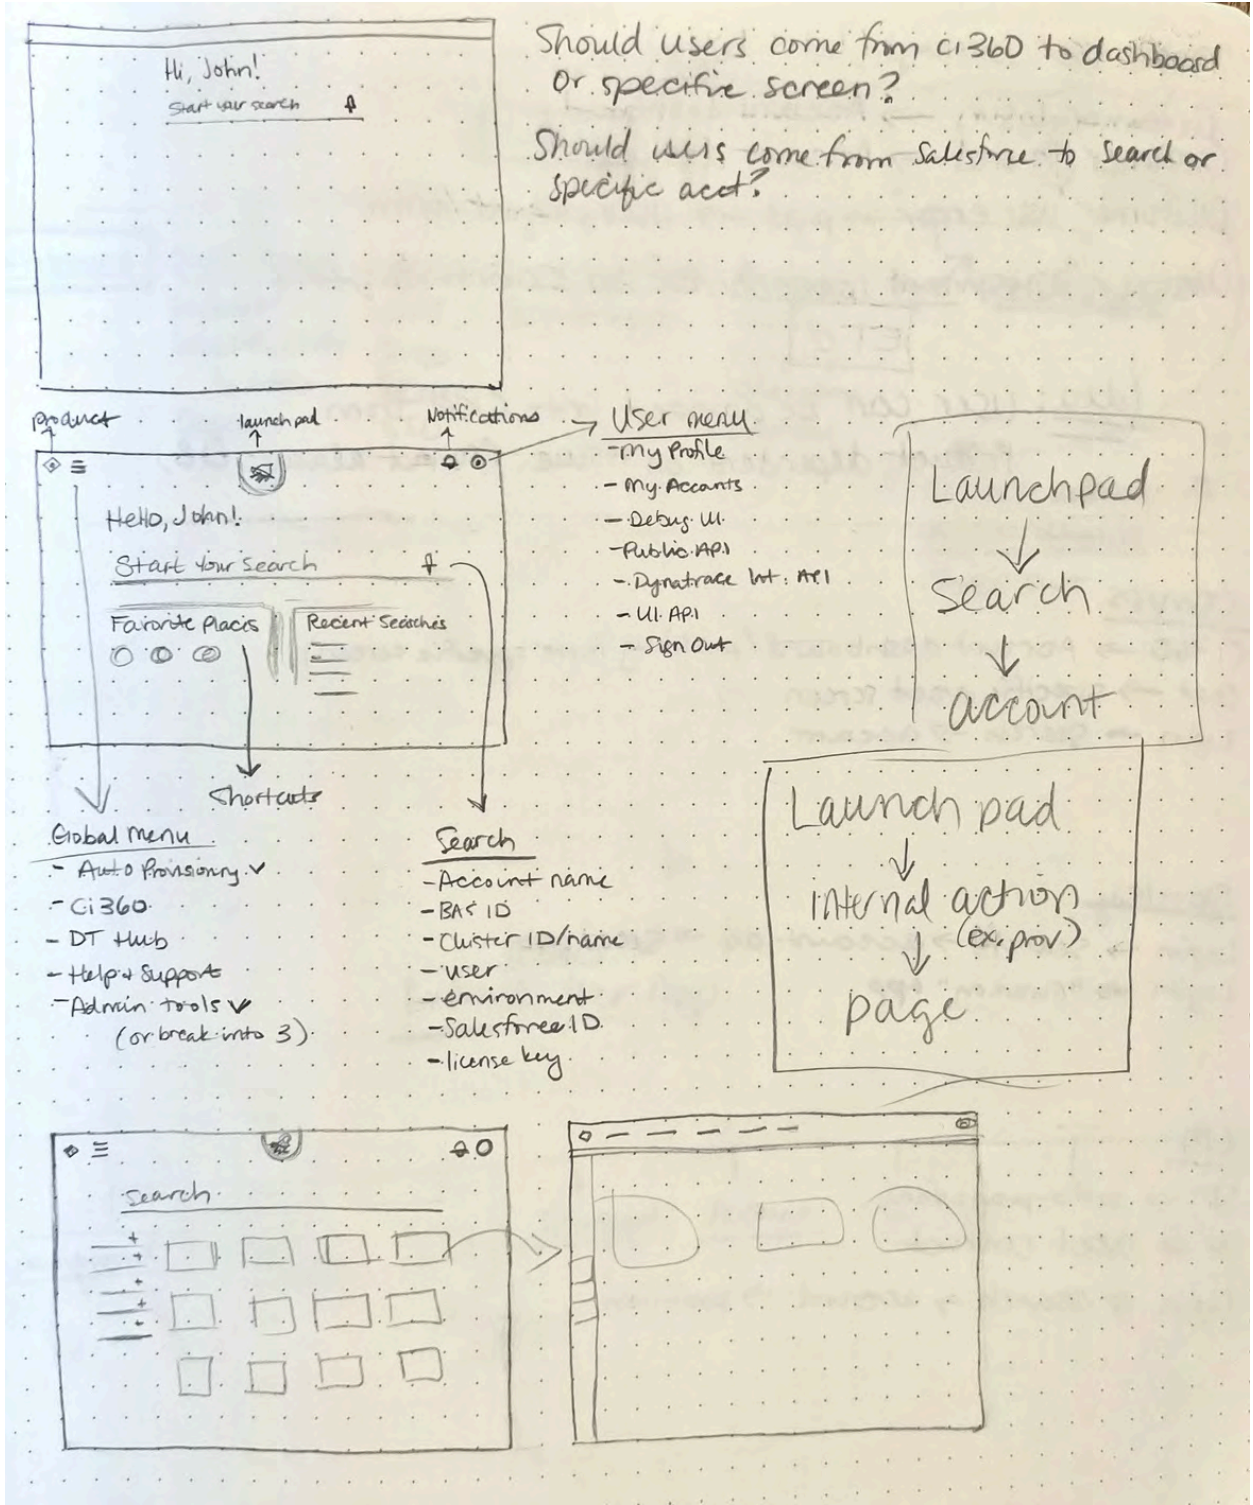 Hi, John!
Start your search
Should users come from ci360 to dashboard
or specific screen?
Should users come from Salesforce to search or
specific acct?
Product
launchpad
Notifications
Hello, John!
Start Your Search
Favorite Places
Recent Searches
User menu
- My Profile
- My Accounts
- Debug UI
- Public API
- Dynatrace Int. API
- UI API
- Sign Out
Launchpad
Search
account
Shortcuts
Global Menu
- Auto Provisionng
- Ci360
- DT Hub
- Help + Support
- Admin tools
(or break into 3)
Search
- Account name
- BAS ID
- Cluster ID/name
- user
- environment
- Salesforce ID
- license key
Launch pad
internal action
(ex. prov)
page
search